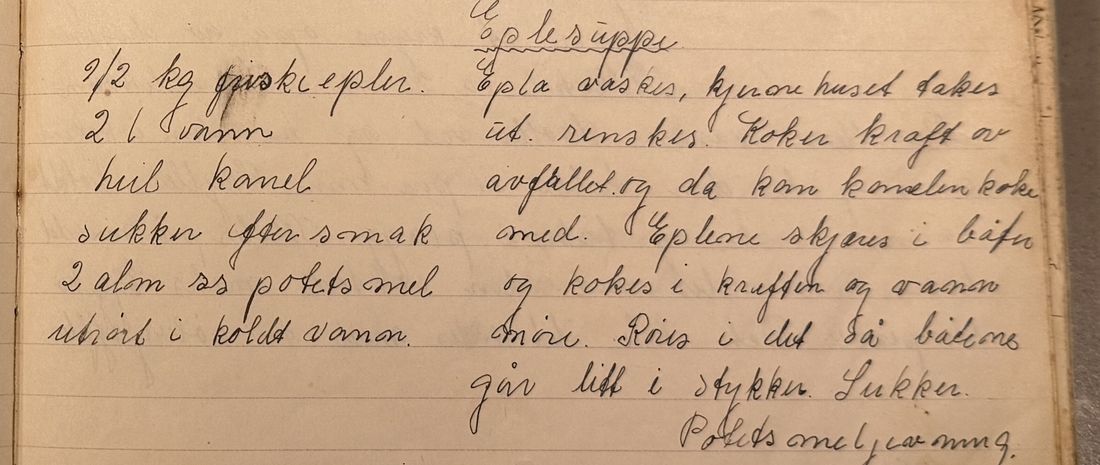 Eplesuppe
1/2 kg friske epler.
2 l vann
heil kanel
sukker efter smak
2 alm ss potetsmel
utrørt i koldt vann.
Epla vaskes, kjernehuset takes
ut. renskes. Koker kraft av
avfallet. og da kan kanelen koke
med. Eplene skjæres i båter
og kokes i kraften og vann
møre. Røres i det så båtene
går litt i stykker. Sukker.
Potetsmeljevning.